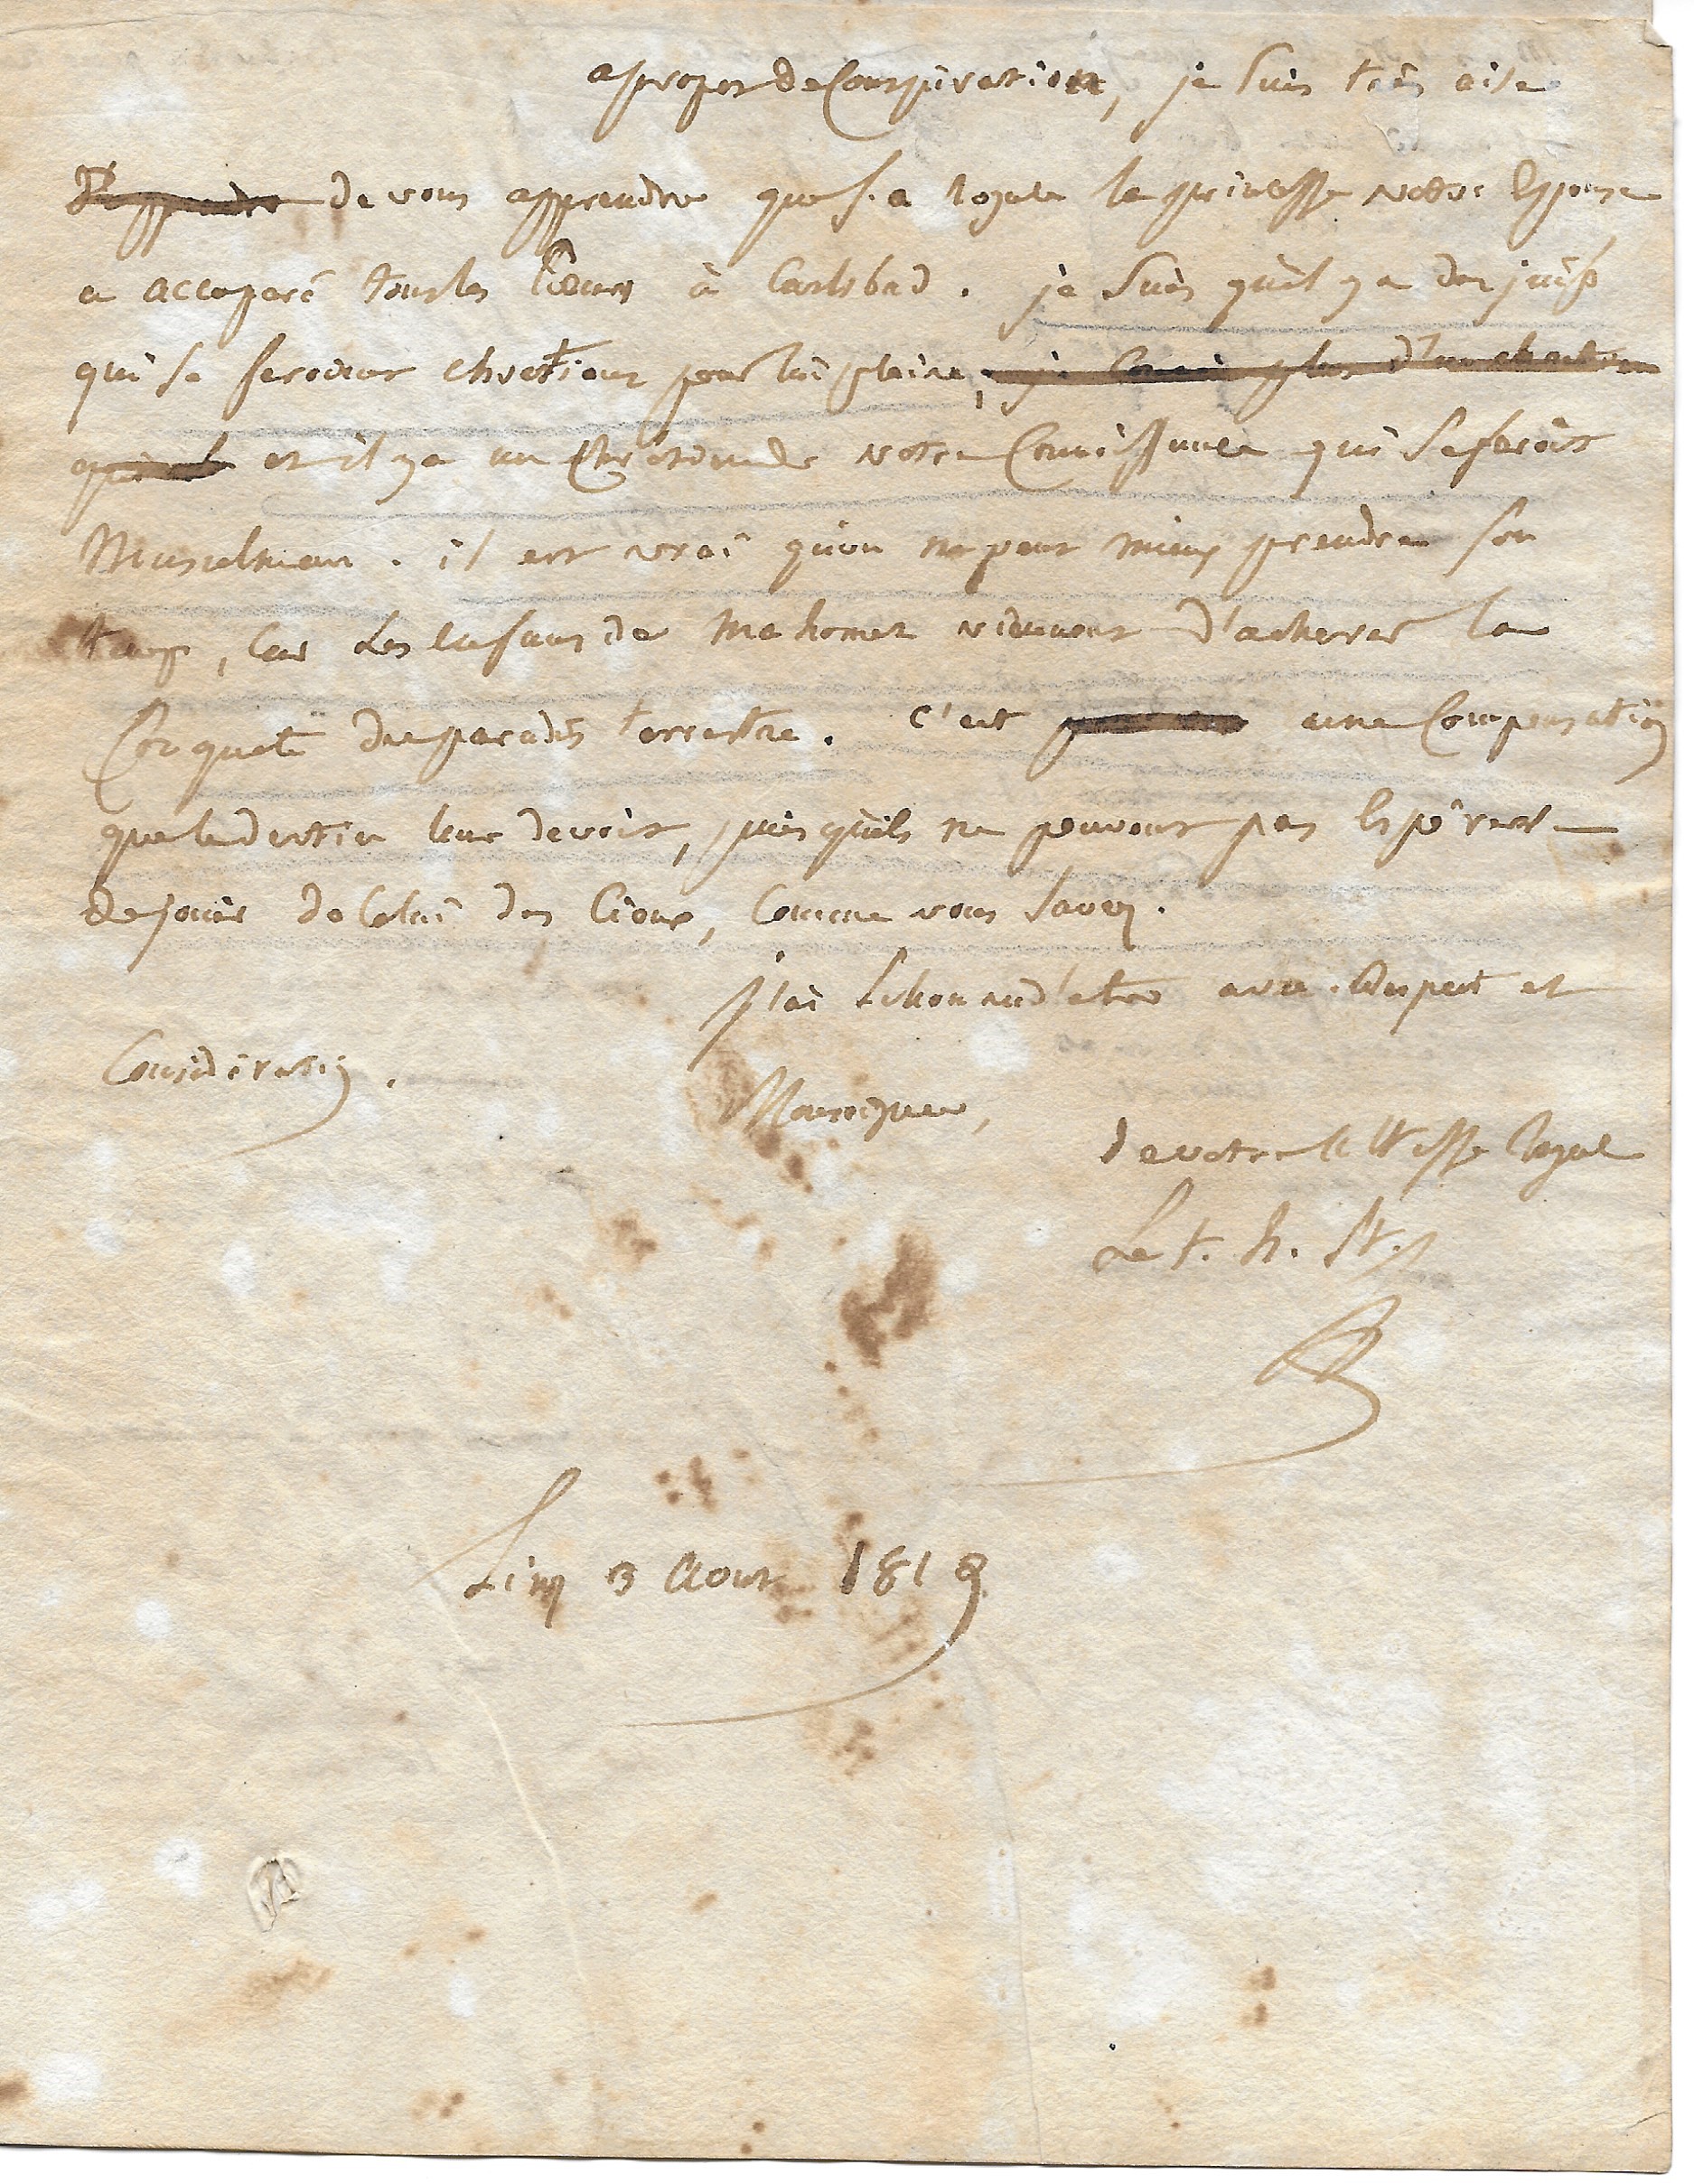 apropos de Conspiration, je suis très aise
D'apprendre de vous apprendre que s. a royale la princesse votre Epouse
a accaparé tous les Cœurs à Carlsbad. je suis qu'il y a des juifs
qui se feroient chretiens pour lui plaire,
et il y a un Chrétien de votre Connoissance qui se feroit
Musulman. il est vrai qu'on ne peut mieux prendre son
temps, Car Les enfans de Mahomet viennent d'achever la
Conquete du paradis terrestre. C'est une Compensation
que le destin leur devoit, puis qu'ils ne peuvent pas Espérer
de jouir de Celui des Cieux, Comme vous savez.
j'ai L'honneur d'etre avec Respect et
Considération.
Monseigneur,
de votre altesse Royale
Le t. h. st.
3 Aout 1819